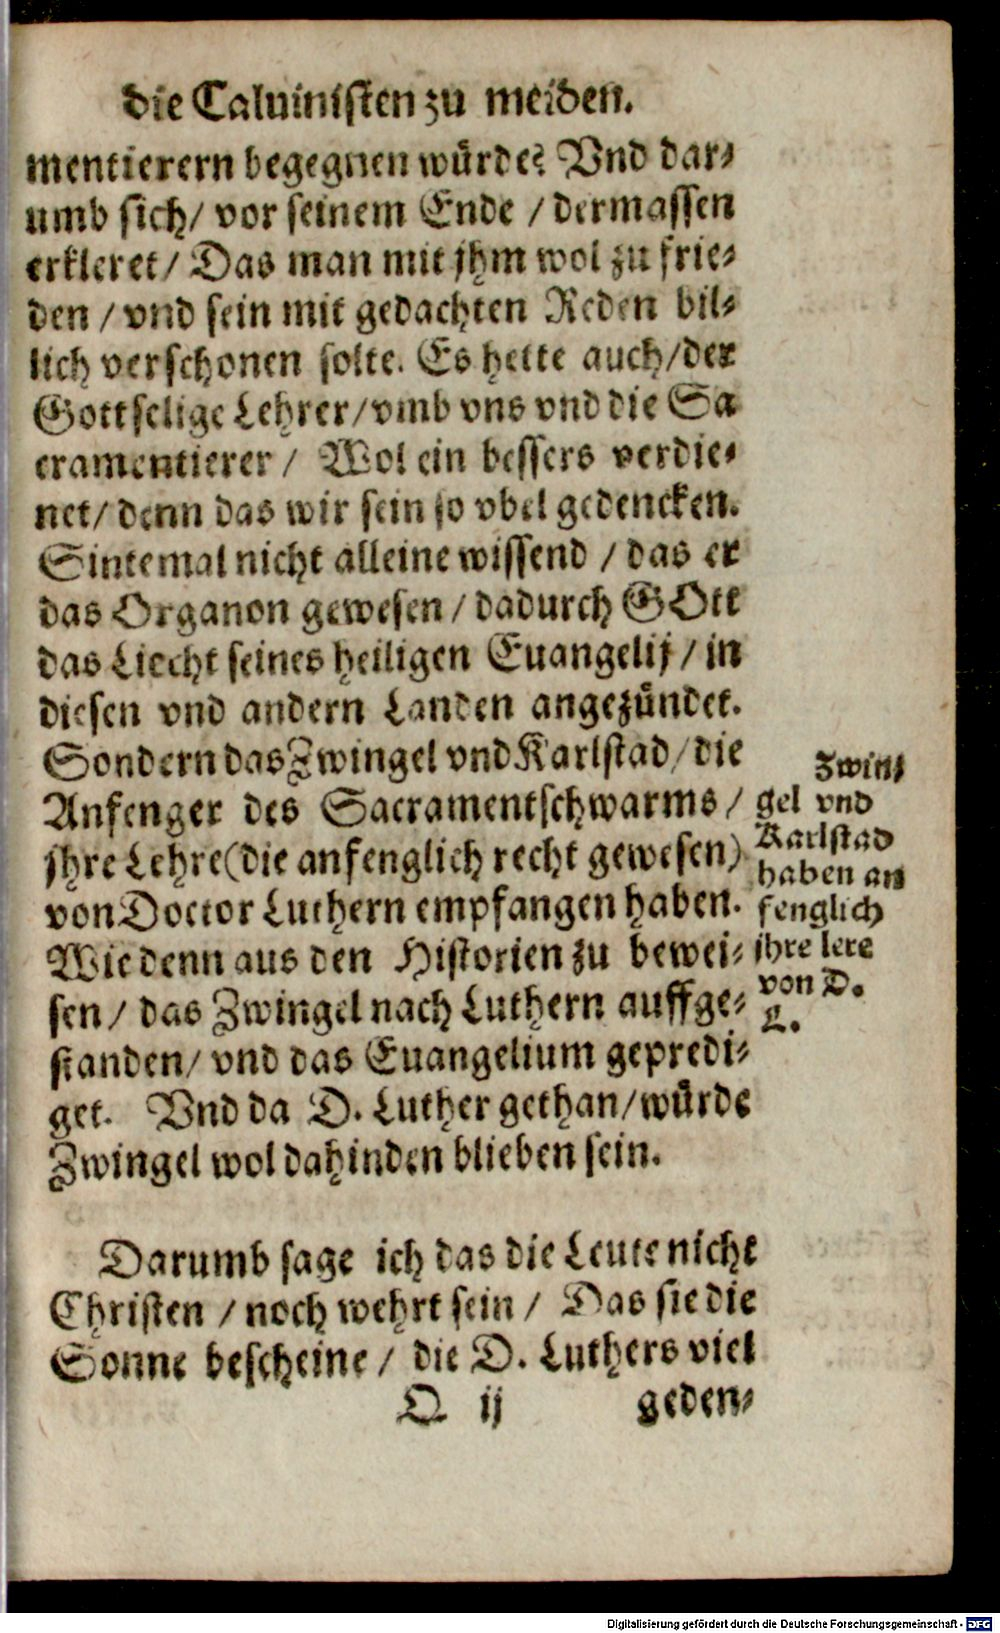 die Caluinisten zu meiden.
mentierern begegnen würde? Vnd dar-
umb sich/ vor seinem Ende / dermassen
erkleret/ Das man mit jhm wol zu frie-
den / vnd sein mit gedachten Reden bil-
lich verschonen solte. Es hette auch/der
Gottselige Lehrer/vmb vns vnd die Sa
cramentierer / Wol ein bessers verdie-
net/ denn das wir sein so vbel gedencken.
Sintemal nicht alleine wissend / das er
das Organon gewesen / dadurch GOtt
das Liecht seines heiligen Euangelij / in
diesen vnd andern Landen angezündet.
Sondern das Zwingel vnd Karlstad/ die
Anfenger des Sacramentschwarms /
jhre Lehre (die anfenglich recht gewesen)
von Doctor Luthern empfangen haben.
Wie denn aus den Historien zu bewei-
sen / das Zwingel nach Luthern auffge-
standen/ vnd das Euangelium gepredi-
get. Vnd da D. Luther gethan/würde
Zwingel wol dahinden blieben sein.
Zwin-
gel vnd
Karlstad
haben an
fenglich
jhre lere
von D.
L.
Darumb sage ich das die Leute nicht
Christen / noch wehrt sein / Das sie die
Sonne bescheine / die D. Luthers viel
O ij geden-
Digitalisierung gefördert durch die Deutsche Forschungsgemeinschaft - DFG